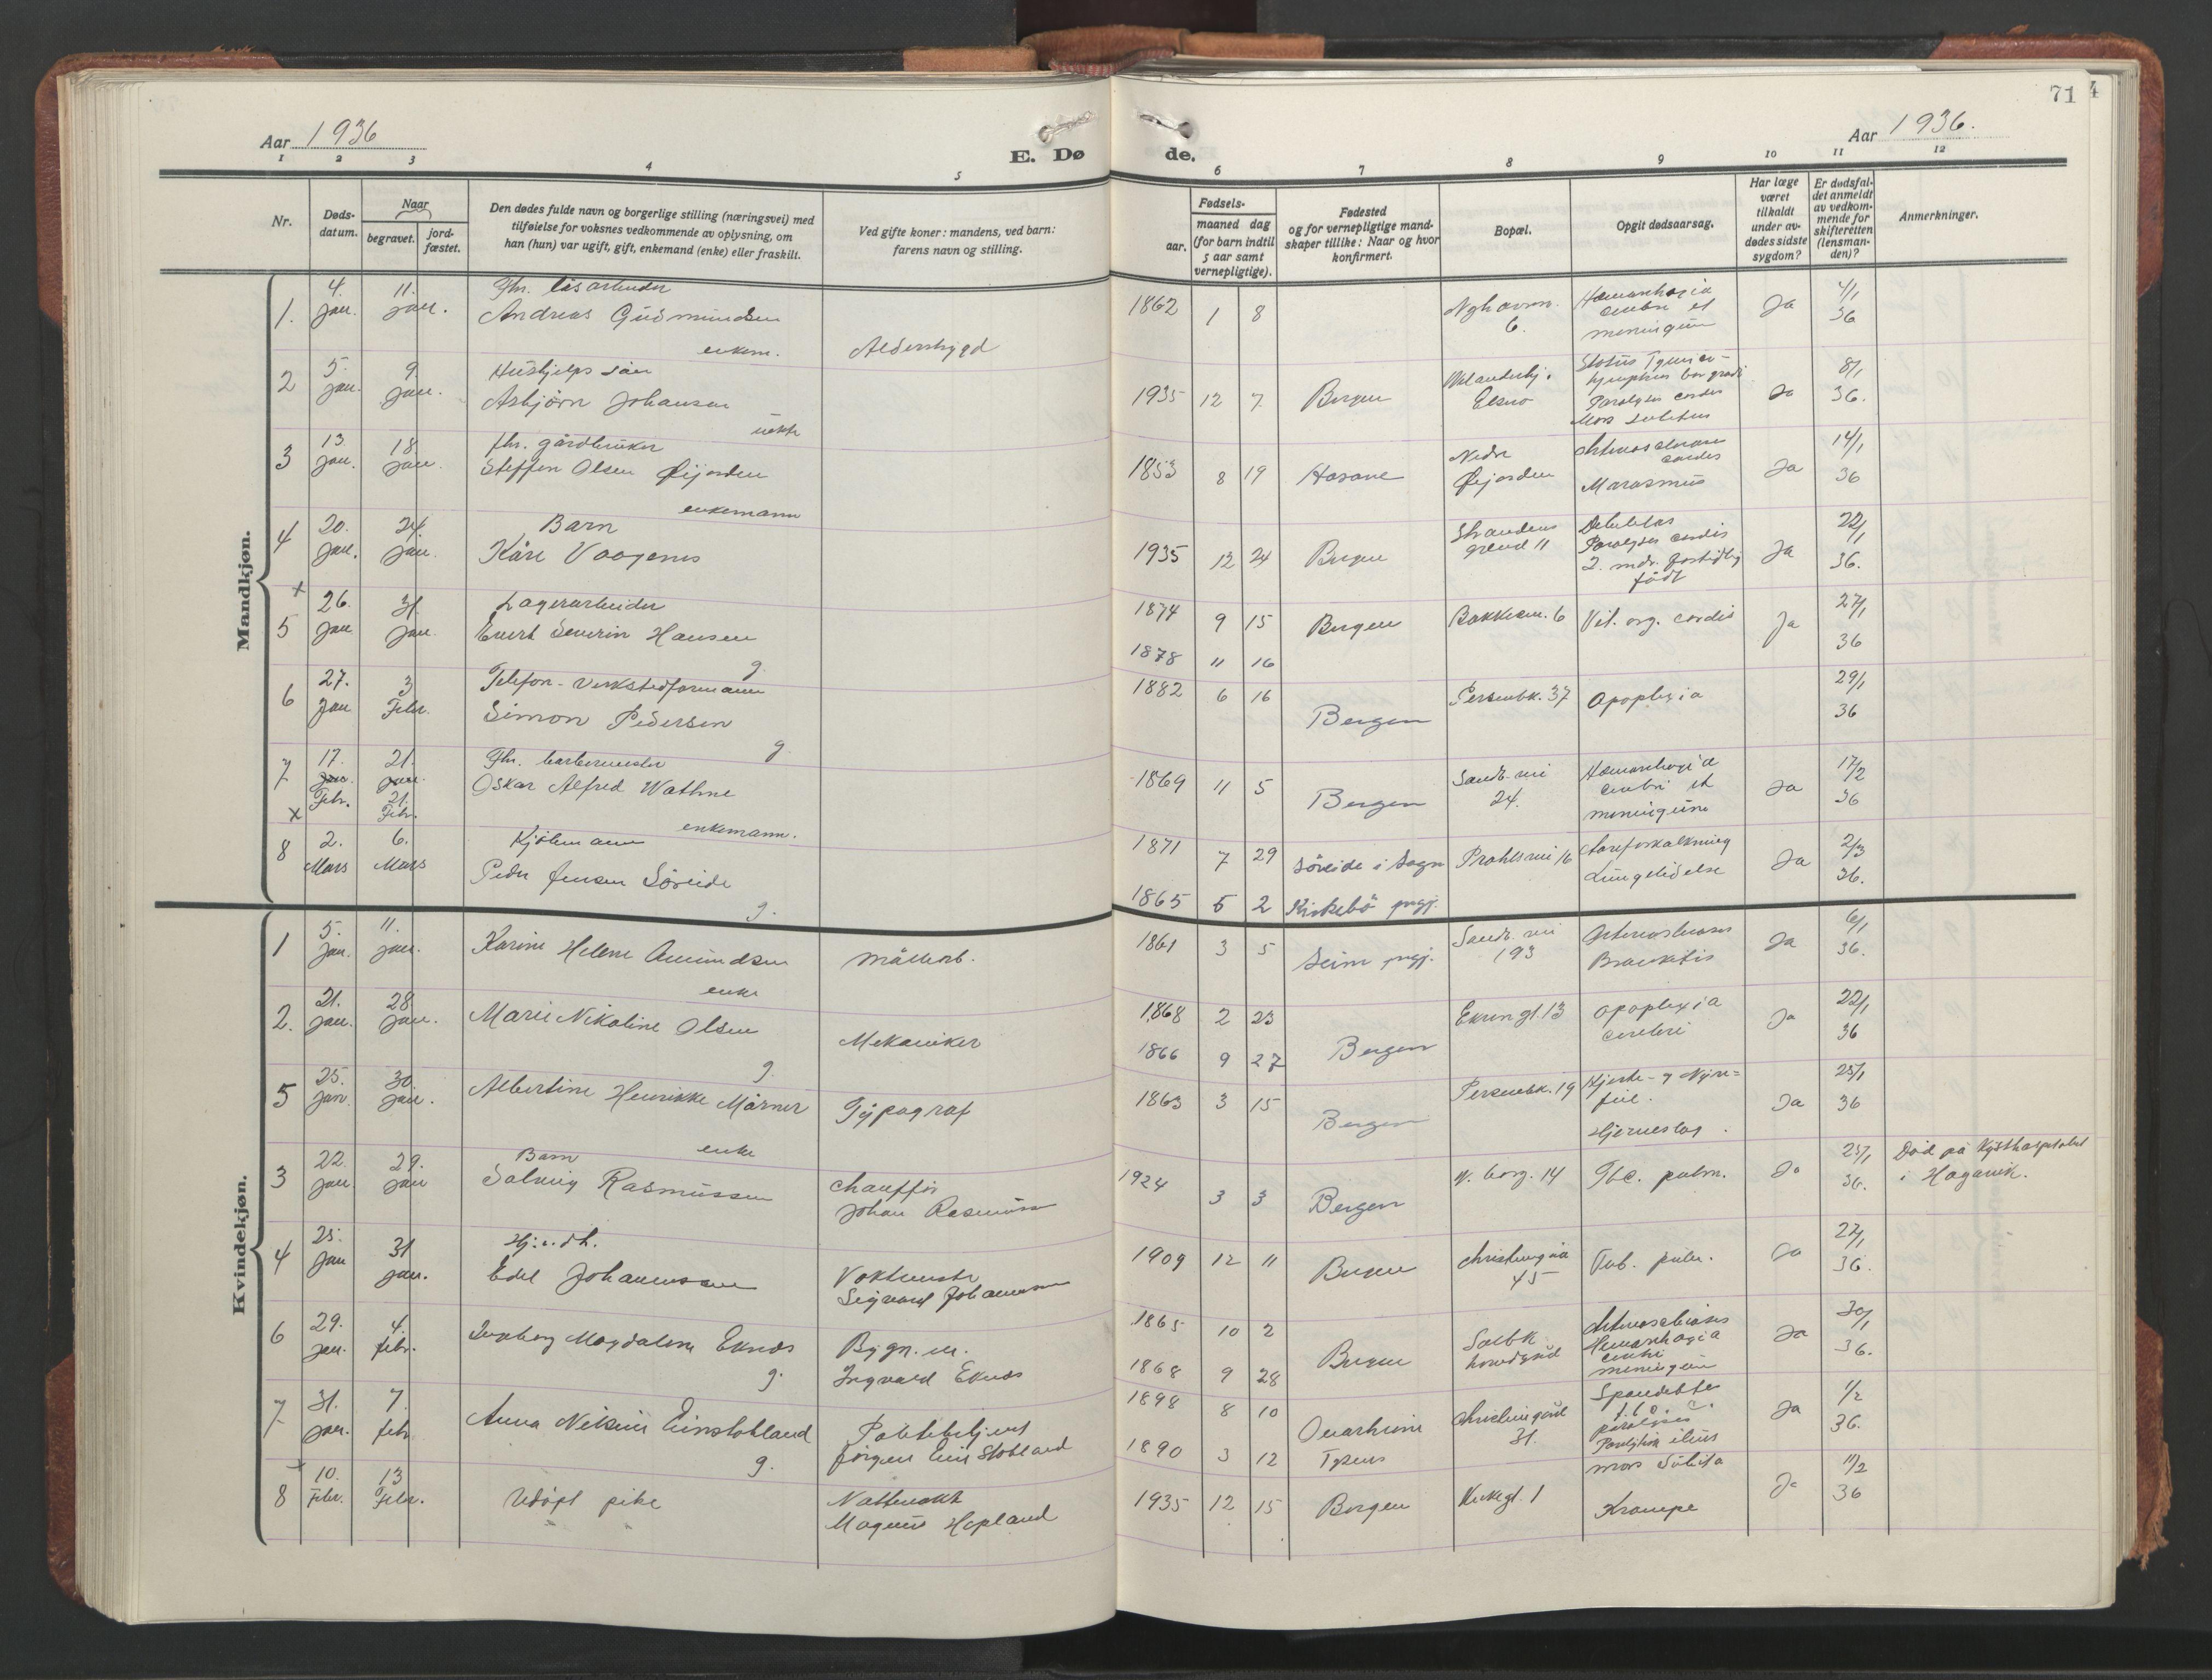 71
Aar 1936
E. Døde.
Aar 1936.
1 2 3 4 5 6 7 8 9 10 11 12
Nr.
Døds-datum.
Naar
begravet.
jord-fæstet.
Den dødes fulde navn og borgerlige stilling (næringsvei) med
tilføielse for voksnes vedkommende av oplysning, om
han (hun) var ugift, gift, enkemand (enke) eller fraskilt.
Ved gifte koner: mandens, ved barn:
farens navn og stilling.
Fødsels-
aar.
maaned dag
(for barn indtil
5 aar samt
vernepligtige).
Fødested
og for vernepligtige mand-
skaper tillike: Naar og hvor
konfirmert.
Bopæl.
Opgit dødsaarsag.
Har læge
været
tilkaldt
under av-
dødes sidste
sygdom?
Er dødsfal-
det anmeldt
av vedkom-
mende for
skifteretten
(lensman-
den)?
Anmerkninger.
Mandkjøn.
1. 4. Jan. 11. Jan. Fhr. løsarbeider
Andreas Gudmundsen
enkem. Alderstrygd
1862 1 8 Nyhavnsv. 6. Hæmorrhagia
cerebri et
meningum Ja 4/1 36
2 5. Jan. 9. Jan. Hushjelps sön
Asbjörn Johansen
uekte
1935 12 7 Bergen Elsero Status Tymico-
lymphus
Paralyses cordis
Mors subitus Ja 8/1 36.
3 13. Jan. 18. Jan. fhr. gårdbruker
Steffen Olsen Øijorden
enkemann
1853 8 19 Hosane Nedre
Øijorden Arteriosclerose
cordis
Marasmus Ja 14/1 36
4 20. Jan. 24. Jan. Barn
Kåre Vaagenes
1935 12 24 Bergen Strandens
grend 11 Debilitas
Paralyses cordis
2. mdr. fortidlig
född Ja 22/1 36.
x
5 26. Jan 31. Jan. Lagerarbeider
Evert Severin Hansen
g.
1874 9 15 Bergen Bakkesm. 6 Vit. org. cordis Ja 27/1 36
1878 11 16
6 27. Jan 3 Febr. Telefon-verkstedformann
Simon Pedersen
g.
1882 6 16 Bergen Persenbk. 37 Apoplexia 29/1 36
7 17. Jan. Febr. 21. Jan. 21. Febr. Fhr. barbermester
Oskar Alfred Wathne
enkemann.
1869 11 5 Bergen Sandv. vei
24. Hæmorrhagia
cerebri et
meningum Ja 17/2 36
x
8 2. Mars 6. Mars Kjölmann
Peder Jensen Söreide
g.
1871 7 29 Söreide i Sogn Prahlsvei 16 Aareforkalkning
Lungelidelse Ja 2/3 36.
1865 5 2 Kirkebö prgj.
Kvindekjøn.
1 5. Jan. 11. Jan. Karine Helene Amundsen
enke
Mållerb.
1861 3 5 Seim prgj. Sandv. vei
193 Bronkitis Ja 6/1 36.
2. 21. Jan. 28. Jan. Marie Nikoline Olsen
g.
Mekaniker
1868 2 23 Bergen Ekrengt. 13 Apoplexia
cerebri Ja 22/1 36
1866 9 27
5 25. Jan. 30. Jan. Albertine Henrikke Mörner
enke
Typograf
1863 3 15 Bergen Persenbk. 19 Hjerte- og Nyre-
feil.
Hjerneslag. Ja 25/1 36
3 22. Jan. 29. Jan Barn
Solveig Rasmussen
Chaufför
Johan Rasmussen
1924 3 3 Bergen N. borg. 14 Tbc. pulm. Ja 25/1 36. Död på Kysthospitalet
i Hagavik.
4 25. Jan 31 Jan. Hj.v.dt.
Edel Johannessen
Vaktmester
Sigvard Johannessen
1909 12 11 Bergen Christinegård
45 Tub. pulm. Ja 27/1 36.
6 29. Jan. 4. febr. Ingeborg Magdalena Eknes
g.
Bygn. m.
Ingvald Eknes
1865 10 2 Bergen Solbk
hovedgård Arteriosclerosis
Hemorrhagia
cerebri
meningum Ja 30/1 36.
1868 9 28
7 31. Jan. 7. febr. Anna Einstabland
g.
Politibetjent
Jörgen Einstabland
1898 8 10 Christinegård
31. Ja 1/2 36.
1890 3 12 Tysnes
x
8 10. Febr. 13 Febr. Udöpt pike
Nattevakt
Magnus Hopland
1935 12 15 Bergen Kirkegt. 1 Mors Subita
Krampe Ja 11/2 36